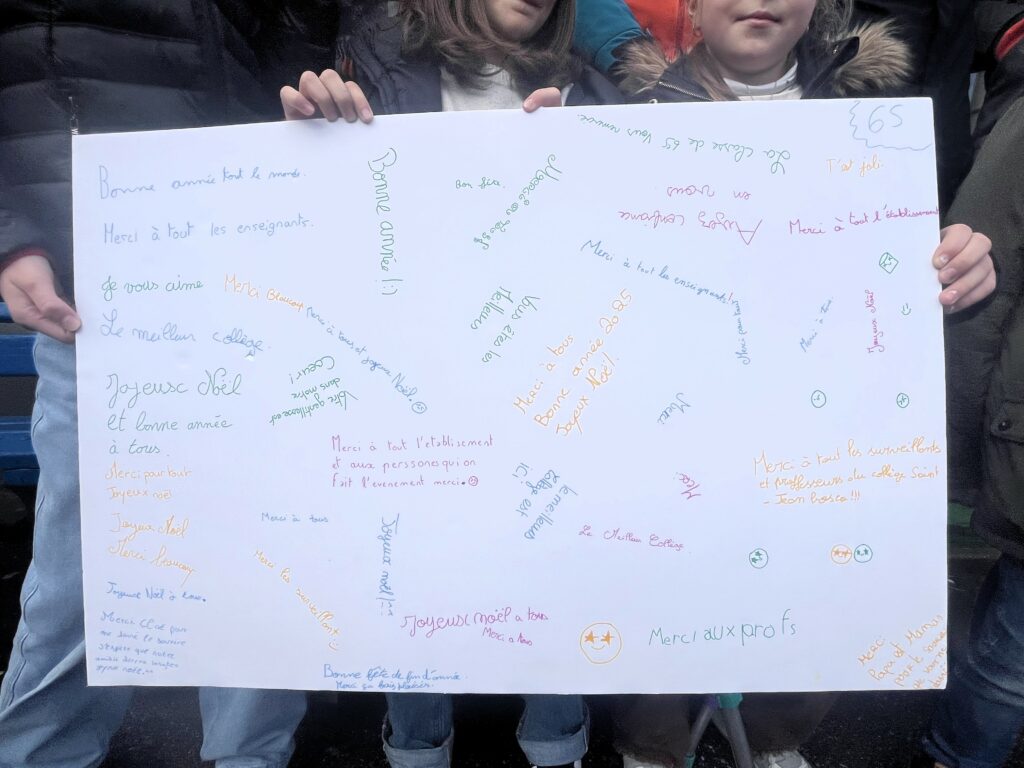 6S
La classe de 6S vous remercie
T'est joli.
Bonne année tout le monde.
Bonne année !:)
Bon fête.
Ayez confiance
en vous
Merci à tout l'établissement
Merci à tout les enseignants.
Merci à tout les enseignants!
Je vous aime
Merci Beaucoup
Merci à tous, et joyeux Noël.
Vous êtes les
meilleurs
Merci à tous
Bonne année 2025
Joyeux Noël!
Merci pour tous
Merci a tout
Joyeux Noël
Le meilleur collège.
Votre gentillesse est
dans notre
Coeur!
Joyeusc Nöel
et bonne année
à tous.
Merci
Merci à tout l'etablisement
et aux perssones qui on
fait l'evenement merci.
Merci pour tout
Joyeux noël
le meilleurs
collège est
ici
Merci à tout les surveillants
et professeurs du collège Saint
-Jean bosco!!!
Joyeux Nöel
Merci beaucoup
Merci à tous
Joyeux noël!!!
Le Meilleur Collège
Merci les surveillant
Joyeuse Noël à tous.
Joyeusc noël a tous
Merci a tous
Merci aux profs
Bonne fête de fin d'année.
Merci
Papa et Maman